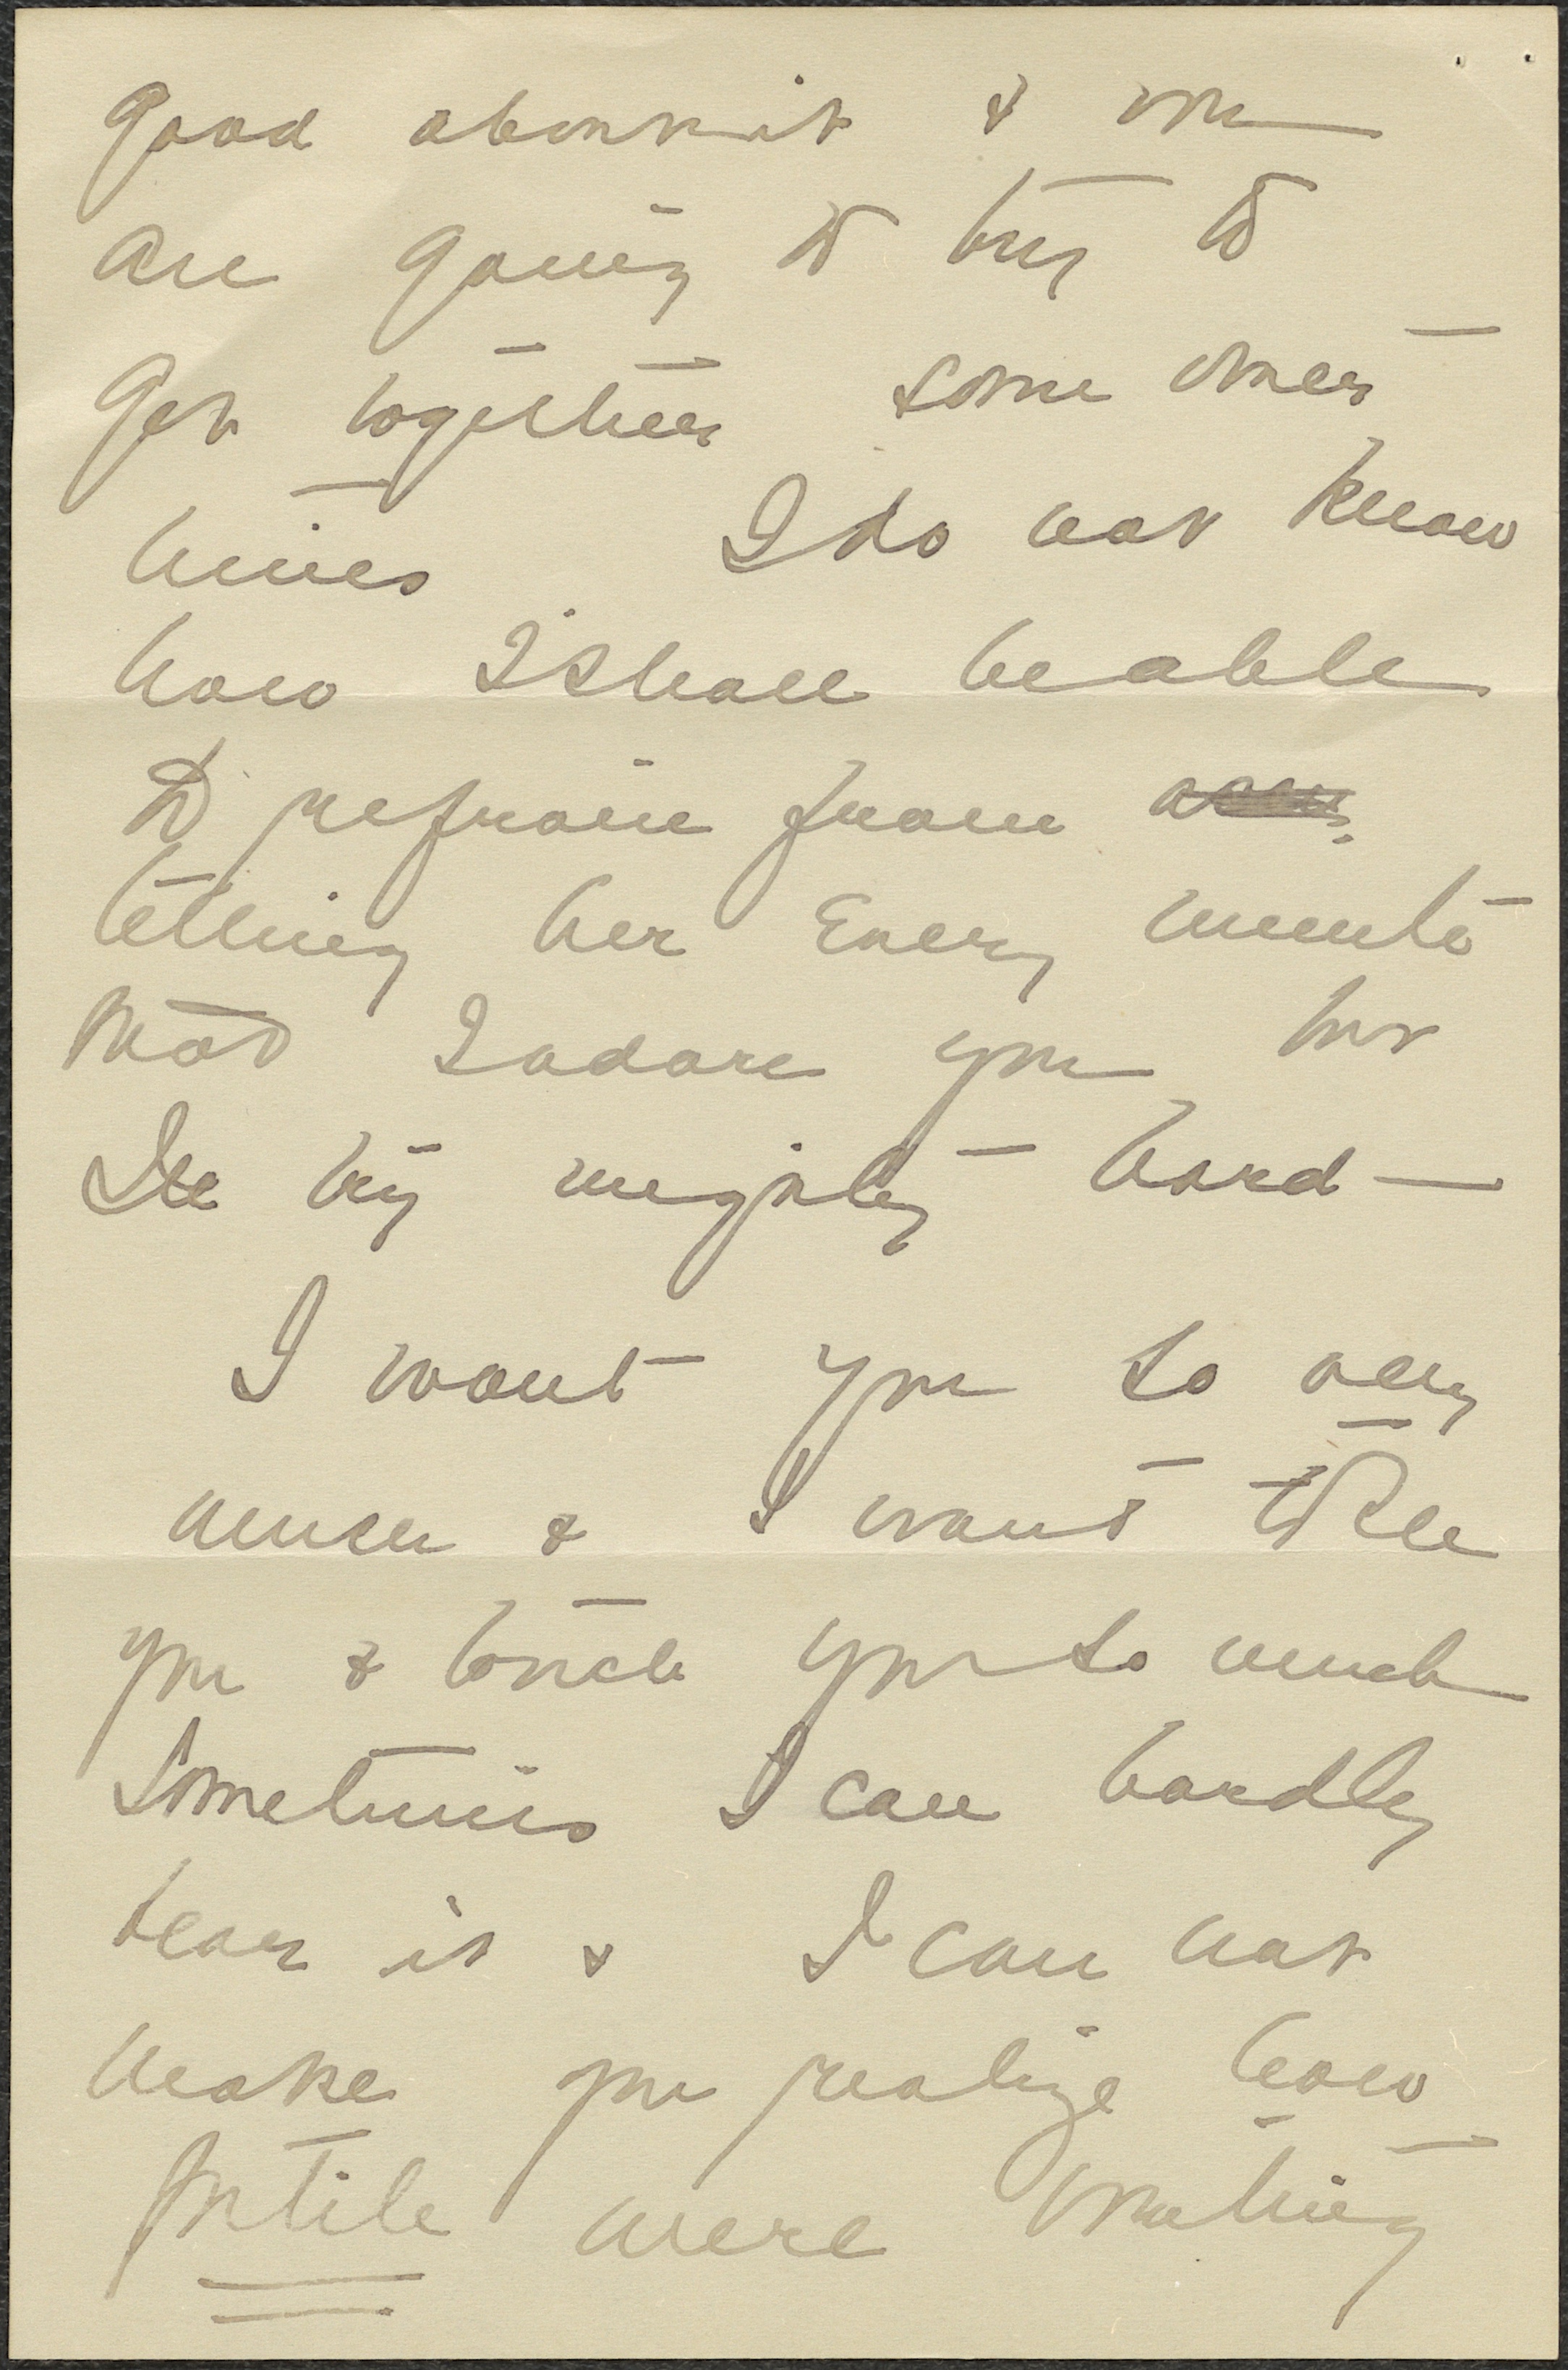 good about it & we
are going to try to
get together some other
times I do not know
how I shall be able
to refrain from
telling her every minute
that I adore you but
Ill try mighty hard —
I want you so very
much & I want to see
you & touch you so much
Sometimes I can hardly
bear it & I can not
make you realize how
futile mere writing